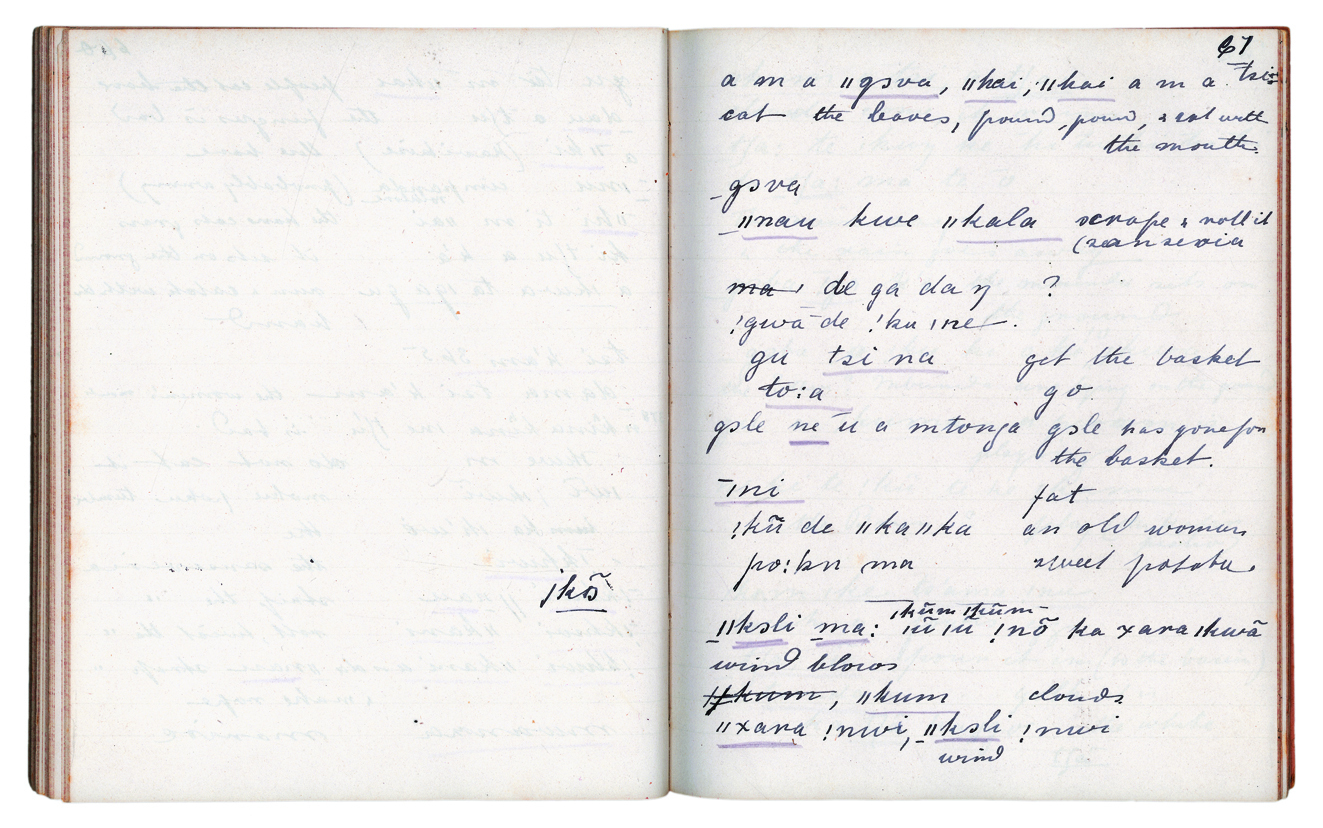 ǀkõ
67
a m a ǁgǝva, ǁkai, ǁkai a m a tsi
eat the leaves, pound, pound, & eat with
the mouth.
gǝva
ǁnau kwe ǁkala scrape & roll it
(sanseviа
ma de ga da ŋ ?
ǃgwā de ǃku ǀne.
gu tsi na get the basket
to:a go.
gǝle ne ū a mtonga gǝle has gone for
the basket.
ǀni fat
ǃkũ de ǁkaǁka an old woman
po:kn ma sweet potatoe
ǀkũm ǀkũm
ǁkǝli ma: ǀũ ǀũ ǃnõ ka xara ǀkwã
wind blows
ǁkum, ǁkum clouds
ǁxara ǃnwi, ǁkǝli ǃnwi
wind